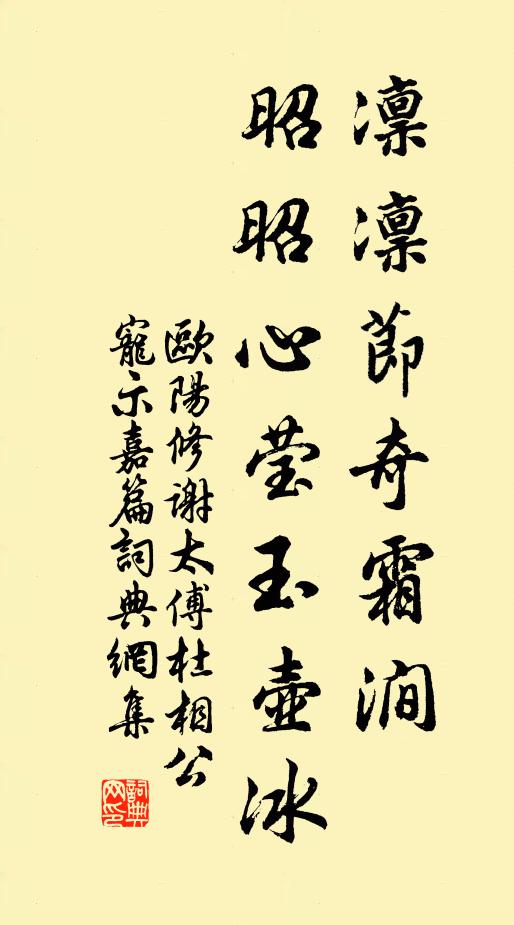 凜凜節奇霜澗
昭昭心莹玉壺冰
歐陽修謝太傅杜相公
寵示嘉篇詞典網集
詞典網印